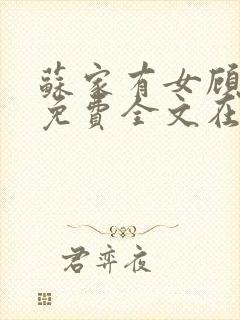 蘇家有女顧
免費全文在
君弈夜